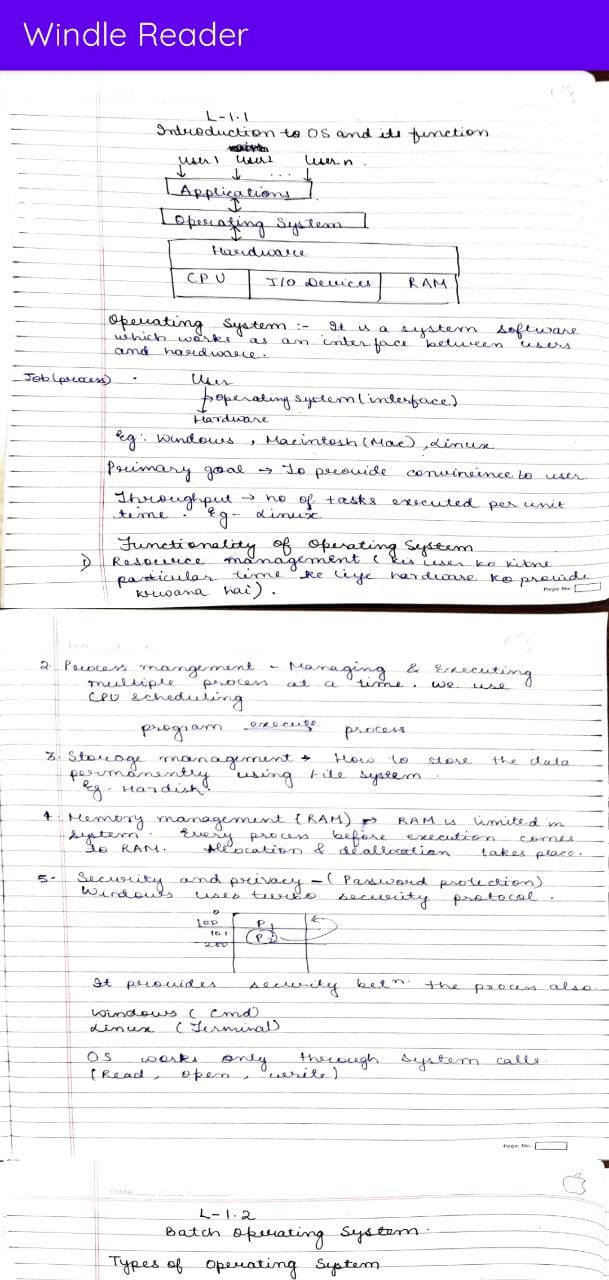 Windle Reader
L-1.1
Introduction to OS and its function
user 1 user2 ... user n.
Applications
Operating System
Hardware
CPU I/O Devices RAM
Operating System :- It is a system software
which works as an interface between users
and hardware.
Job(process) . User
operating system (interface)
Hardware
Eg: Windows, Macintosh (Mac), Linux
Primary goal → To provide convinience to user
Throughput → no of tasks executed per unit
time. Eg- Linux
Functionality of Operating System
1) Resource management ( kis user ko kitne
particular time ke liye hardware ko provide
krwana hai).
Page No.
Date
2. Process mangement - Managing & Executing
multiple process at a time. we use
CPU scheduling
program execute process
3. Storage management → How to store the data
permanently using File system.
Eg- Hardisk.
4. Memory management (RAM) → RAM is limited in
system. Every process before execution comes
to RAM. Allocation & deallocation takes place.
5. Security and privacy - ( Password protection)
Windows uses security protocol.
0
100 P1
101 P2
200
It provides security betn. the process also.
Windows ( Cmd)
Linux (Terminal)
OS works only through system calls.
(Read, open, write)
Page No.
Date
L-1.2
Batch operating System.
Types of operating System